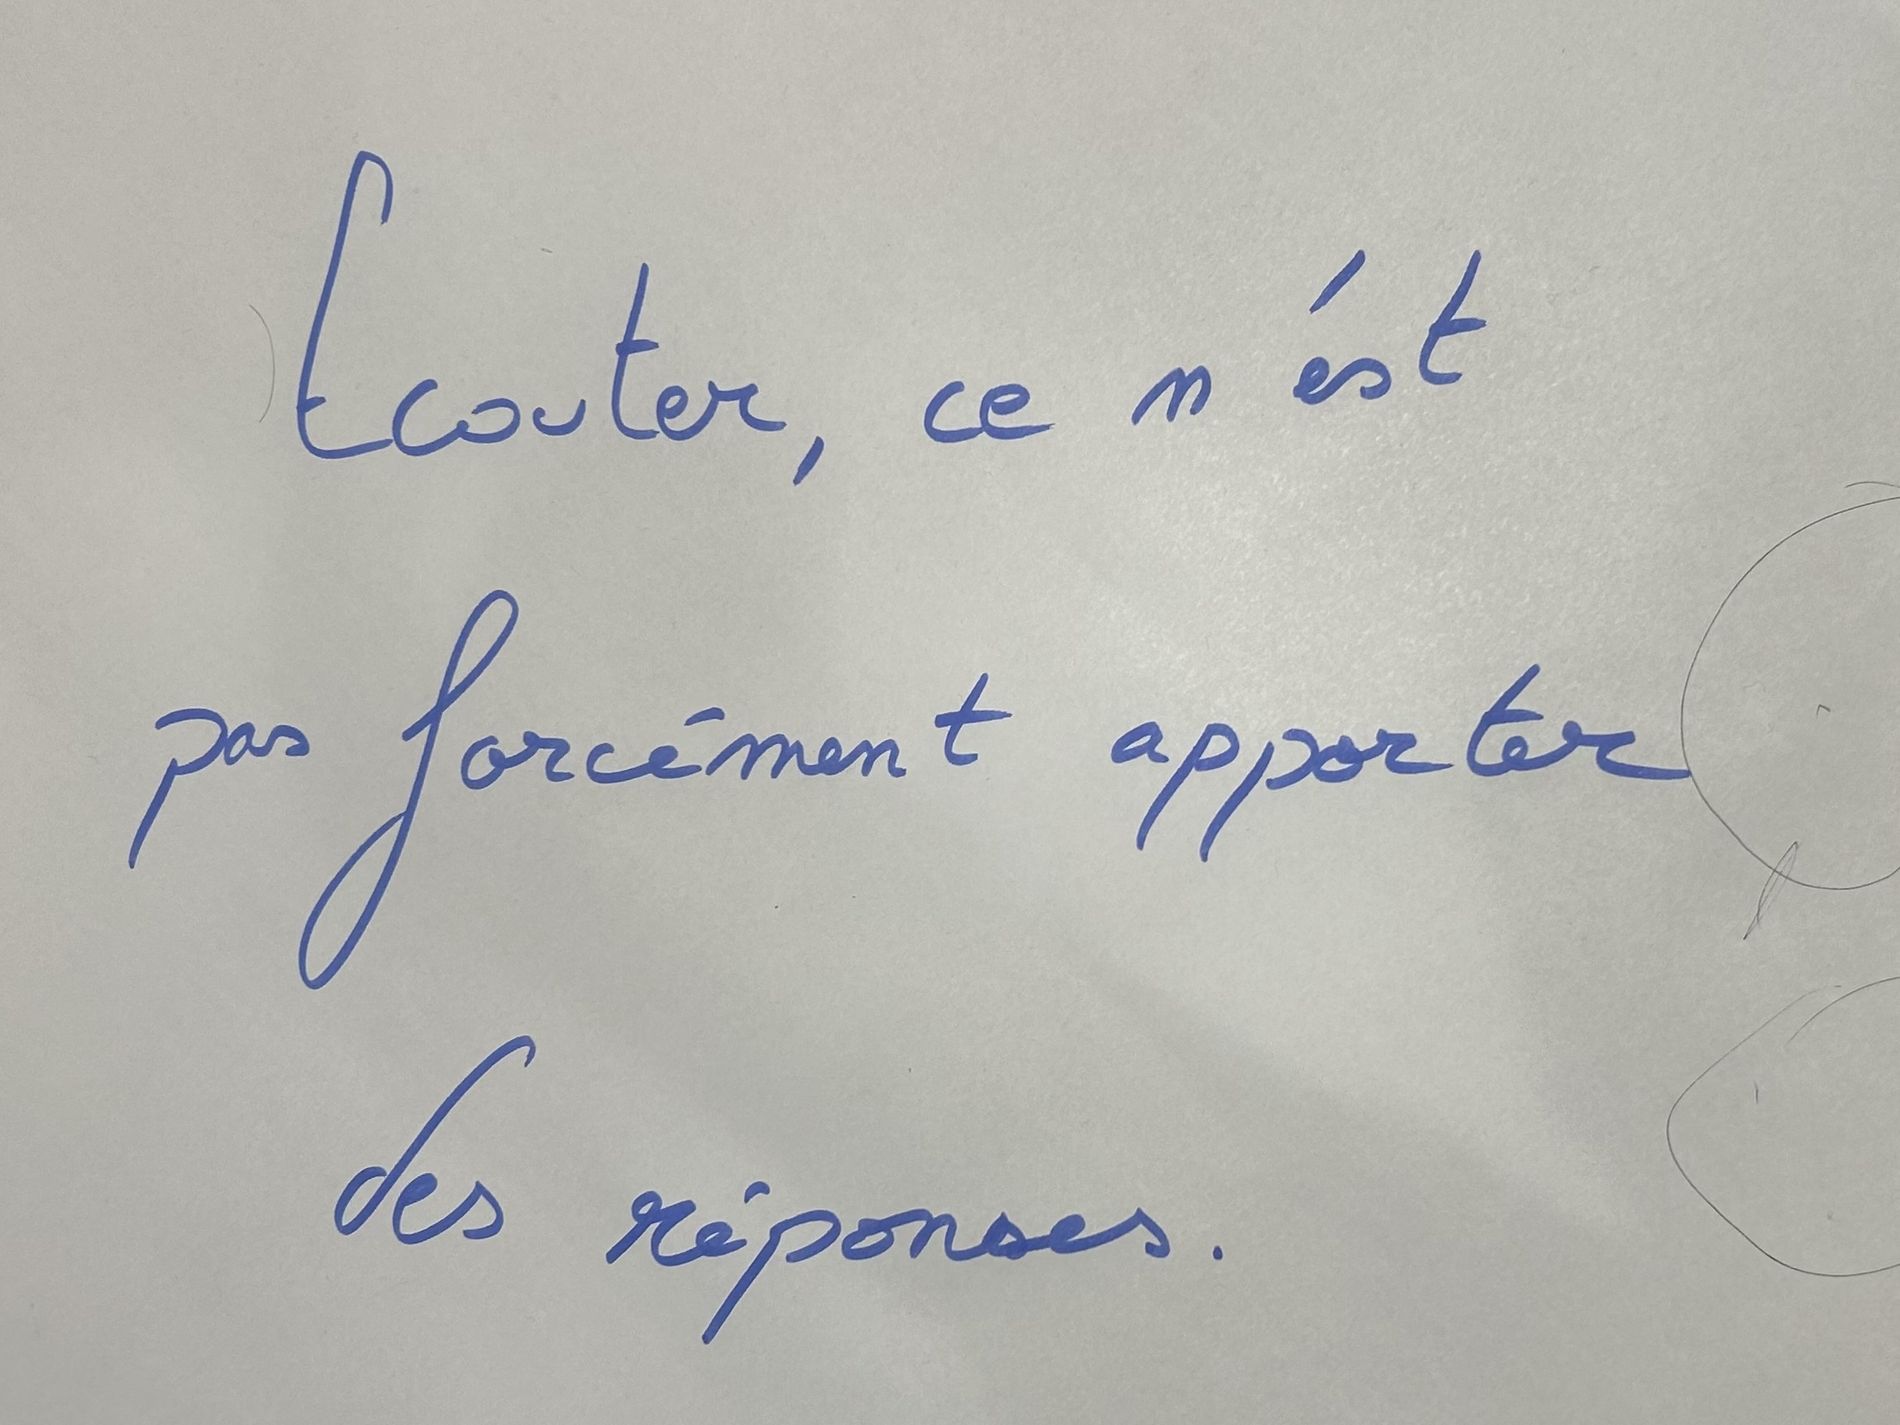 Ecouter, ce n'est
pas forcément apporter
des réponses.